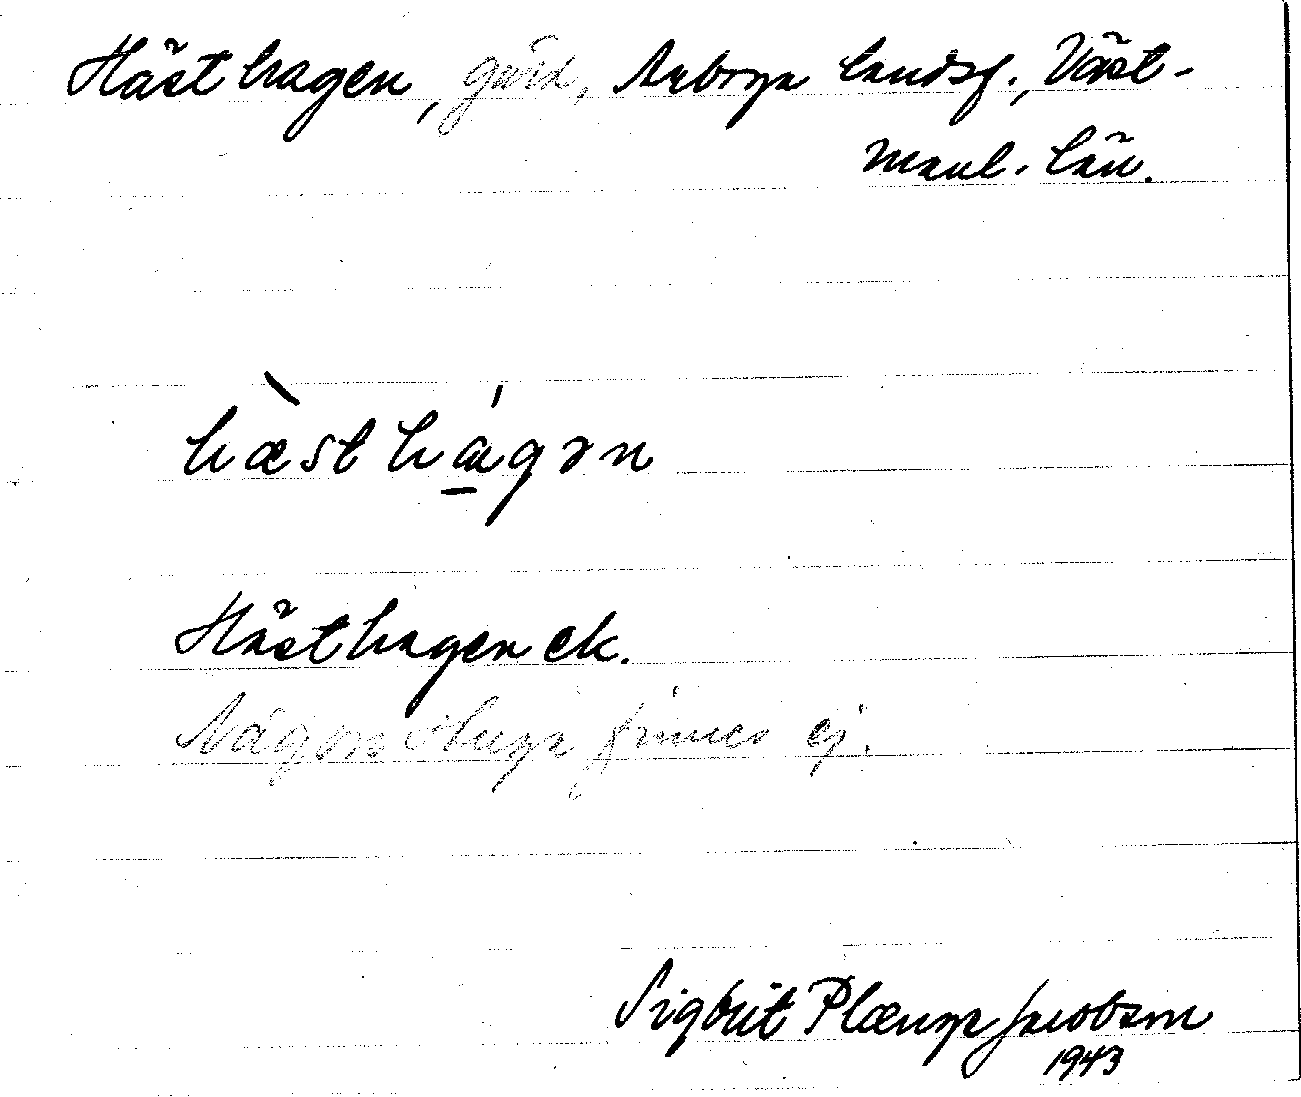 Hästhagen, gård, Arboga landsf., Väst-
manl. län.
hæ̀sthá̱gən
Hästhagen ek.
Någon stuga finnes ej.
Sigbrit Plænge Jacobson
1943